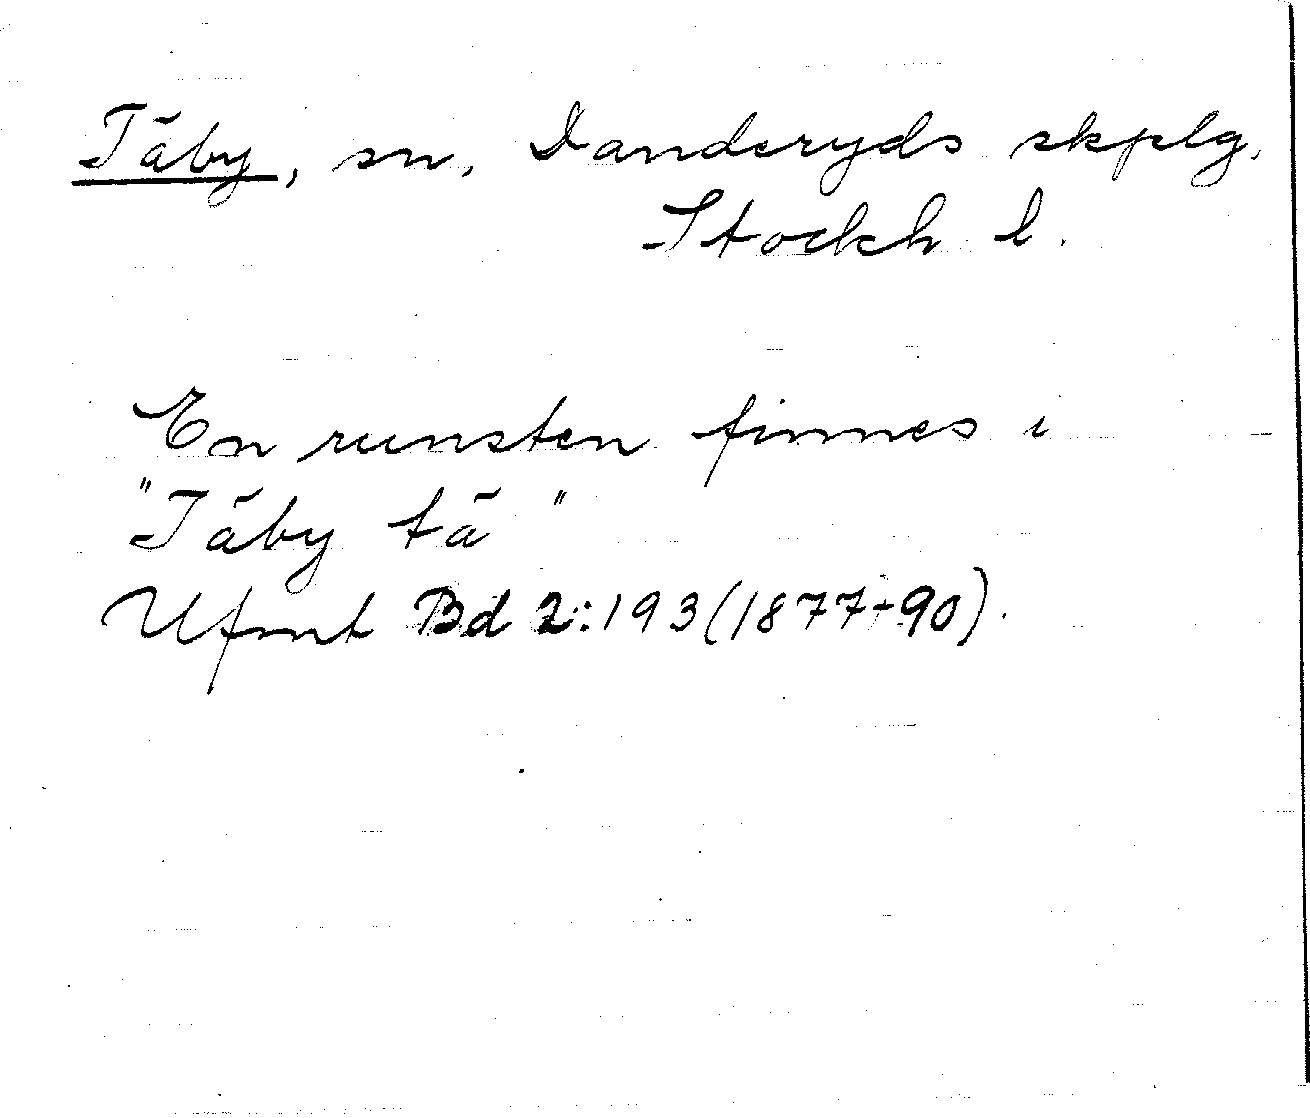 Täby, sn, Danderyds skplg,
Stockh l.
En runsten finnes i
"Täby tä"
Ufmt Bd 2:193(1877-90).